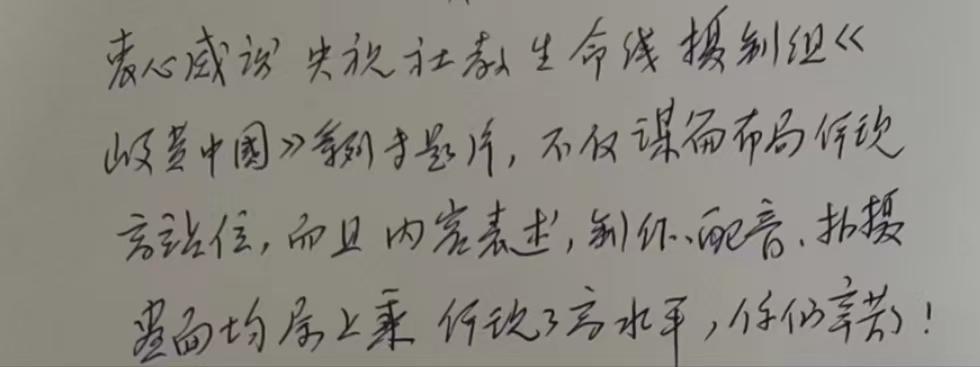 衷心感谢央视社教生命线摄制组《
岐黄中國》系列专题片，不仅谋篇布局体现
高站位，而且内容表述，制作、配音、拍摄
画面均属上乘 体现了高水平，你们辛苦了！